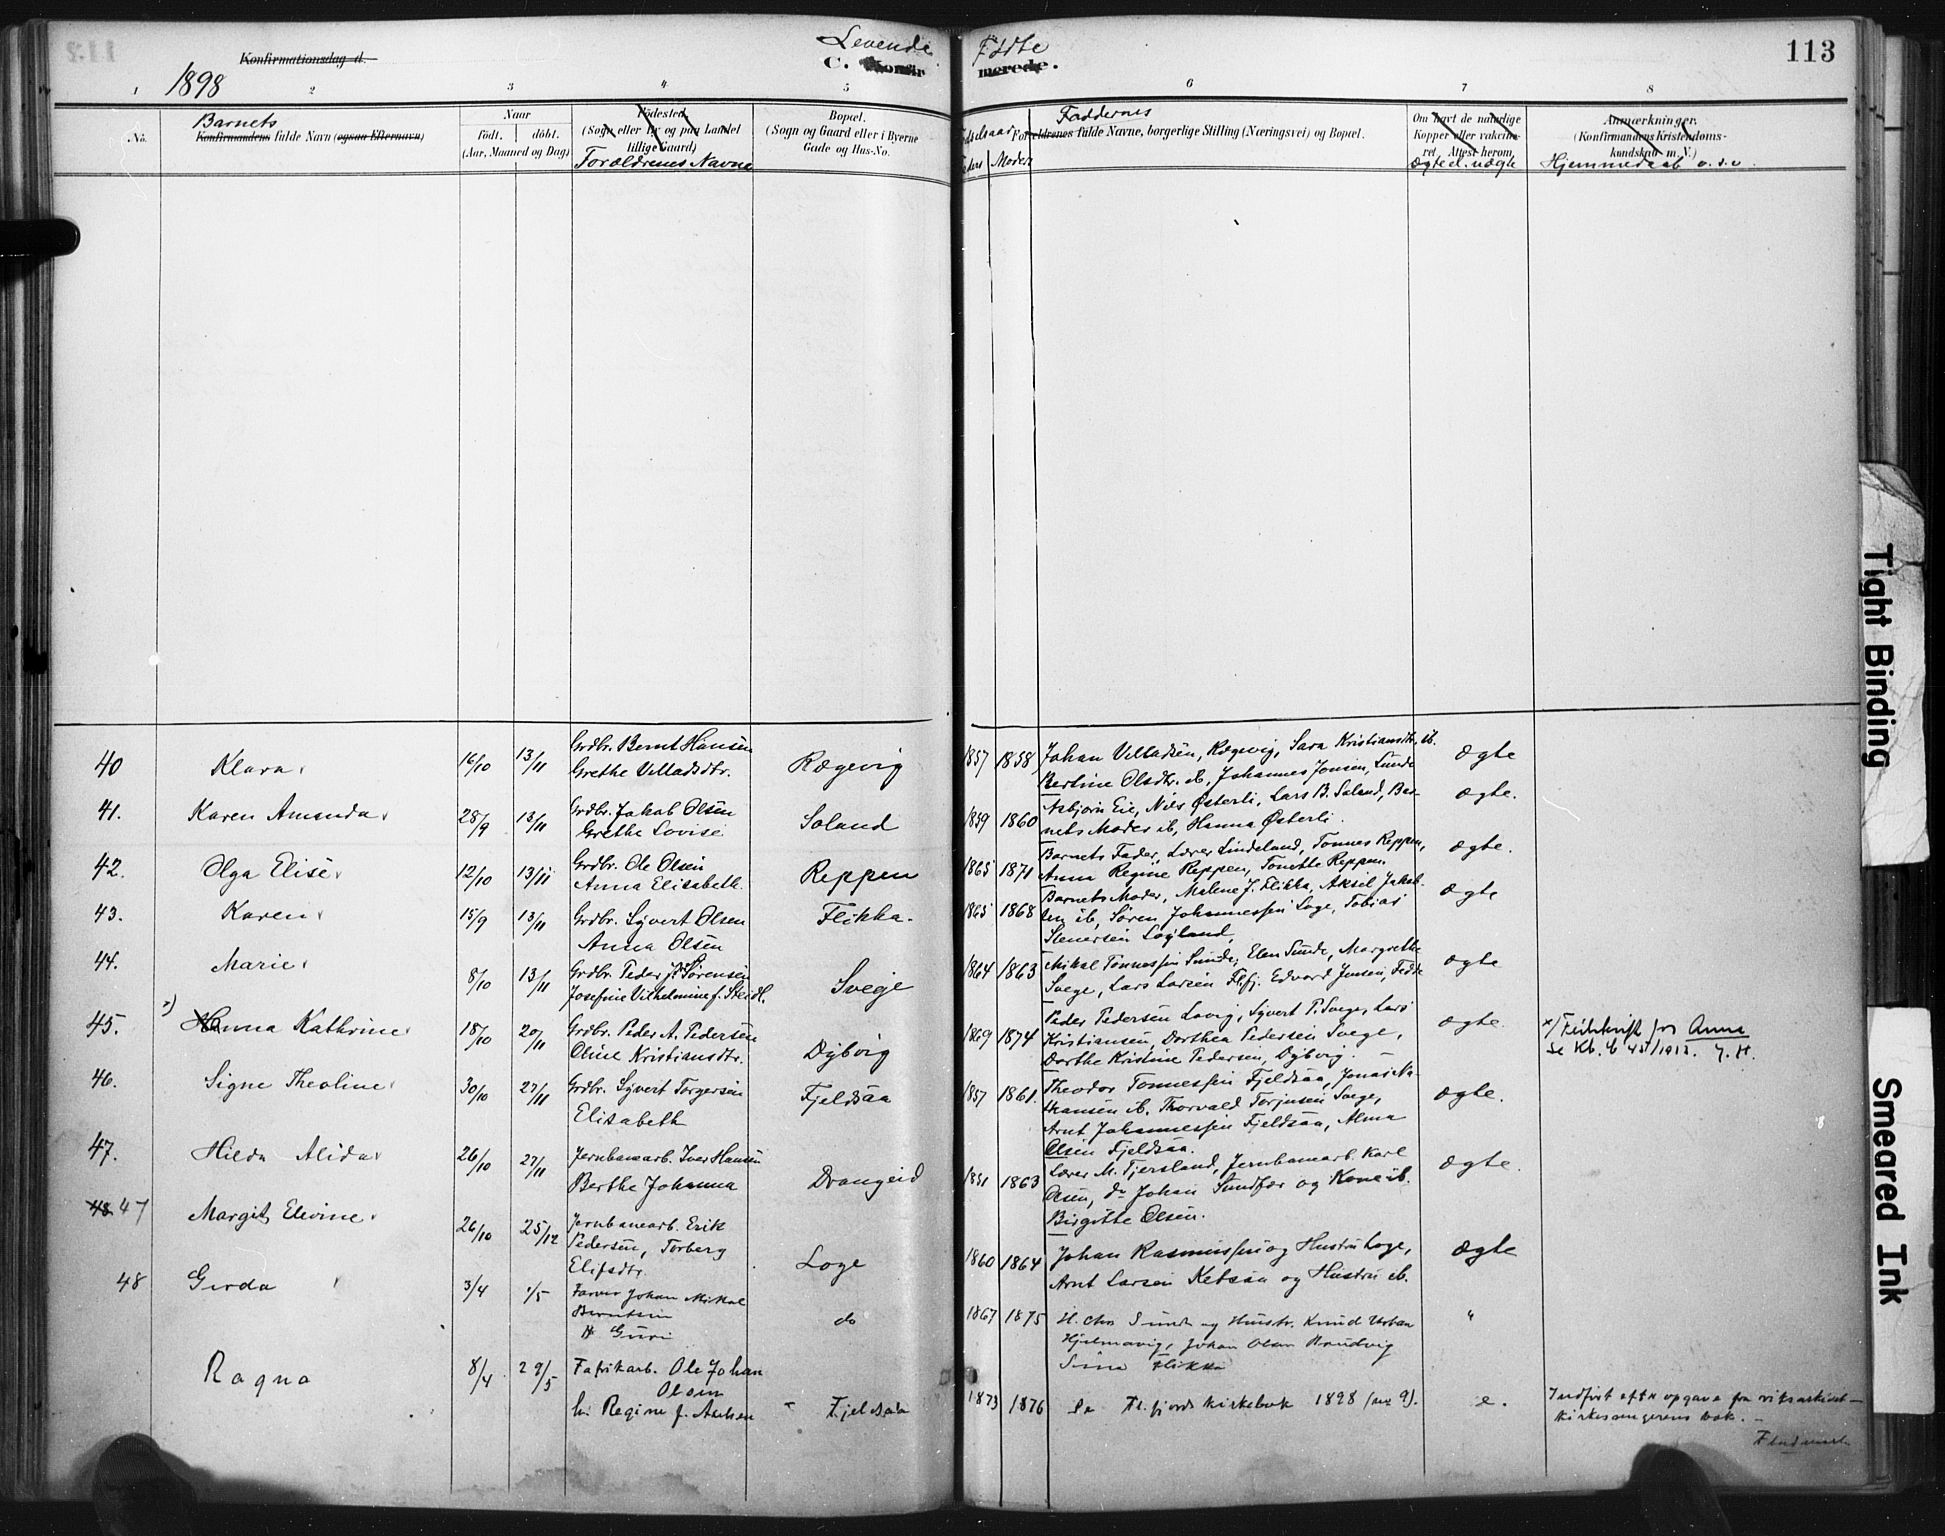 Konfirmationsdag d.
1898
Levende Fødte
C. Konfirmerede.
113
1 2 3 4 5 6 7 8
No.
Barnets
Konfirmandens fulde Navn (ogsaa Efternavn)
Naar
födt. döbt.
(Aar, Maaned og Dag)
Födested
(Sogn eller By og paa Landet
tillige Gaard)
Forældrenes Navne
Bopæl.
(Sogn og Gaard eller i Byerne
Gade og Hus-No.
Moders
Faddernes
Forældrenes fulde Navne, borgerlige Stilling (Næringsvei) og Bopæl.
Om havt de naturlige
Kopper eller vakcineret. Attest herom
Ægte el. uægte
Anmærkninger.
(Konfirmandens Kristendoms-
kundskab m. V.)
Hjemmedøbt o.s.v.
40 Klara 16/10 13/11 Grdbr. Bernt Hansen
Grethe Villadsdtr. Rægevig 1857 1858 Johan Villadsen, Rægevig, Sara Kristiansdtr. ib.
Bertine Olsdtr. ib, Johannes Jonsen, Sunde Ægte
41. Karen Amanda 28/9 13/11 Grdbr. Jakob Olsen
Grethe Lovise Soland 1859 1860 Asbjørn Eie, Nils Østerli, Lars B. Soland, Bar-
nets Moder ib, Hanna Østerli. Ægte.
42. Olga Elise 12/10 13/11 Grdbr. Ole Olsen
Anna Elisabeth. Reppen 1865 1871 Barnets Fader, Lærer Lindeland, Tønnes Reppen,
Anna Regine Reppen, Tonette Reppen. Ægte.
43. Karen 15/9 13/11 Grdbr. Syvert Olsen
Anna Olsen Flikka. 1865 1868 Barnets Moder, Malene J. Flikka, Aksel Jakob-
sen ib, Søren Johannessen Loge, Tobias
Stenersen Logland, Ægte
44. Marie 8/10 13/11 Grdbr. Peder Sørensen
Josefine Vilhelmine f. Svege 1864 1863 Mikal Tønnessen Sunde, Elen Sunde, Margrethe
Svege, Lars Larsen Flfj. Edvard Jensen, Fedde Ægte
45. x) Hanna Kathrine 18/10 20/11 Grdbr. Peder A. Pedersen
Oline Kristiansdtr. Dybvig 1869 1874 Peder Pedersen Løvig, Syvert P. Svege, Lars
Kristiansen, Dorthea Pedersen Svege,
Dorthe Kristine Pedersen, Dybvig. Ægte. x) Feilskrift for Anna
se Kb. 45/1913. J.H.
46. Signe Theoline 30/10 27/11 Grdbr. Syvert Torgersen
Elisabeth Fjeldsåa 1857 1861. Theodor Tønnessen Fjeldsåa, Jonas Na-
thansen ib. Thorvald Torjusen Svege,
Arnt Johannessen Fjeldsåa, Alma
Olsen Fjeldsåa. Ægte.
47. Hilda Alida 26/10 27/11 Jernbanearb. Iver Hansen
Berthe Johanna Drangeid 1851 1863 Lærer M. Tjersland, Jernbanearb. Karl
Olsen, do Johan Sundfær og Kone ib.
Birgitte Olsen. Ægte.
48 47 Margit Elevine 26/10 25/12 Jernbanearb. Erik
Pedersen, Torberg
Elifsdtr. Loge 1860 1864 Johan Rasmussen og Hustru Loge,
Arnt Larsen Ketsåa og Hustru ib. Ægte
48 Gerda 3/4 1/5 Farver Johan Mikal
Berntsen
H Guri do 1867 1875 H. Chr. Sunde og Hustr. Knud Urban
Hjelmavig, Johan Olsen Brudvig
Sina Flikka "
Ragna 8/4 29/5 Fabrikarb. Ole Johan
Olsen
h: Regine f. Fjeldsåa 1873 1876 Se Fl.fjords kirkebok 1898 (nr 9). e. Indført efter opgave fra riksarkivet -
kirkesangerens bok. -